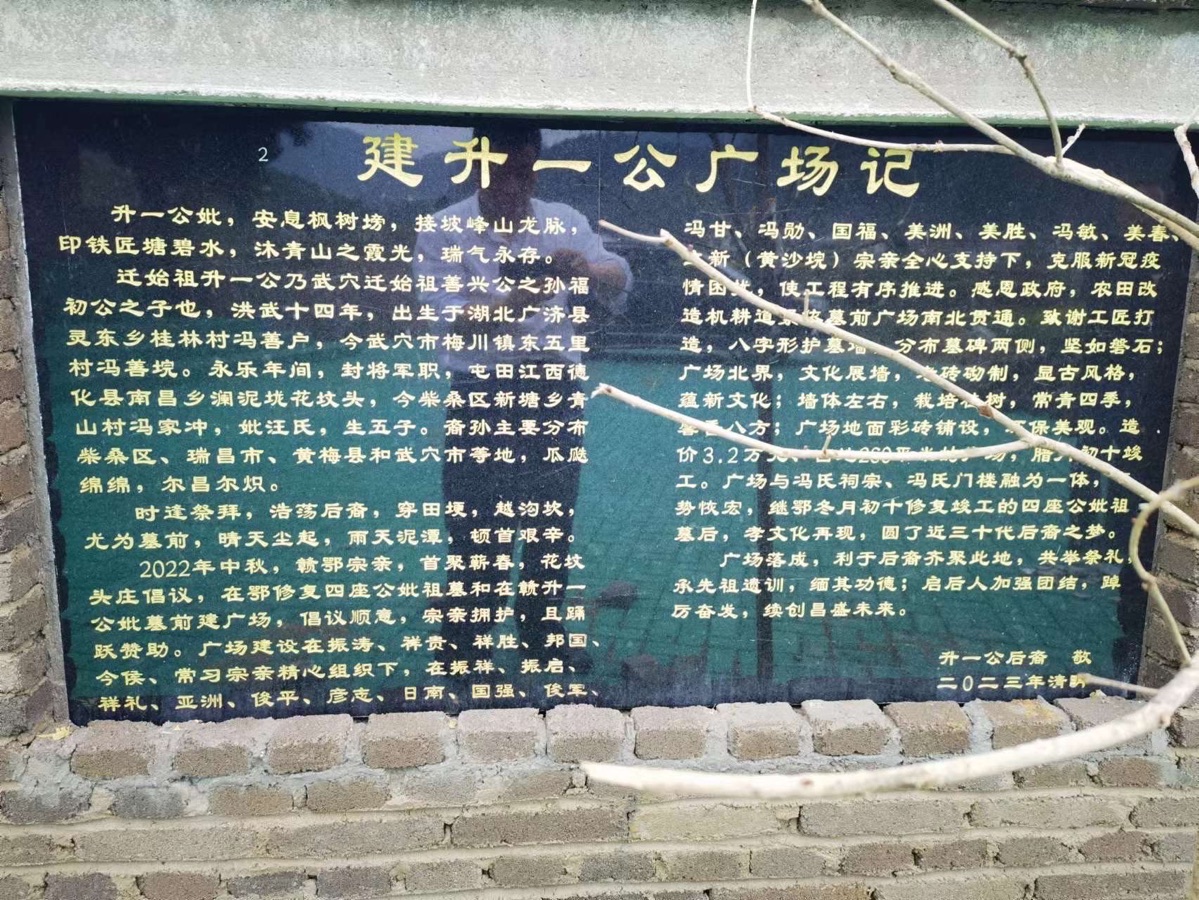 2
建升一公广场记
升一公妣，安息枫树塝，接坡峰山龙脉，
印铁匠塘碧水，沐青山之霞光，瑞气永存。
迁始祖升一公乃武穴迁始祖善兴公之孙福
初公之子也，洪武十四年，出生于湖北广济县
灵东乡桂林村冯善户，今武穴市梅川镇东五里
村冯善垸。永乐年间，封将军职，屯田江西德
化县南昌乡澜泥垅花坟头，今柴桑区新塘乡青
山村冯家冲，妣汪氏，生五子。裔孙主要分布
柴桑区、瑞昌市、黄梅县和武穴市等地，瓜瓞
绵绵，尔昌尔炽。
时逢祭拜，浩荡后裔，穿田埂，越沟坎，
尤为墓前，晴天尘起，雨天泥潭，顿首艰辛。
2022年中秋，赣鄂宗亲，首聚蕲春，花坟
头庄倡议，在鄂修复四座公妣祖墓和在赣升一
公妣墓前建广场，倡议顺意，宗亲拥护，且踊
跃赞助。广场建设在振涛、祥贵、祥胜、邦国、
今侯、常习宗亲精心组织下，在振祥、振启、
祥礼、亚洲、俊平、彦志、日南、国强、俊军、
冯甘、冯勋、国福、美洲、美胜、冯敏、美春、
新（黄沙垸）宗亲全心支持下，克服新冠疫
情困扰，使工程有序推进。感恩政府，农田改
造机耕道 墓前广场南北贯通。致谢工匠打
造，八字形护墓墙，分布墓碑两侧，坚如磐石；
广场北界，文化展墙，砖砌制，显古风格，
蕴新文化；墙体左右，栽培 树，常青四季，
香八方；广场地面彩砖铺设，保美观。造
价3.2万 场，腊月初十竣
工。广场与冯氏祠宗、冯氏门楼融为一体，
势恢宏，继鄂冬月初十修复竣工的四座公妣祖
墓后，孝文化再现，圆了近三十代后裔之梦。
广场落成，利于后裔齐聚此地，共举祭礼
承先祖遗训，缅其功德；启后人加强团结，踔
厉奋发，续创昌盛未来。
升一公后裔 敬
二〇二三年清